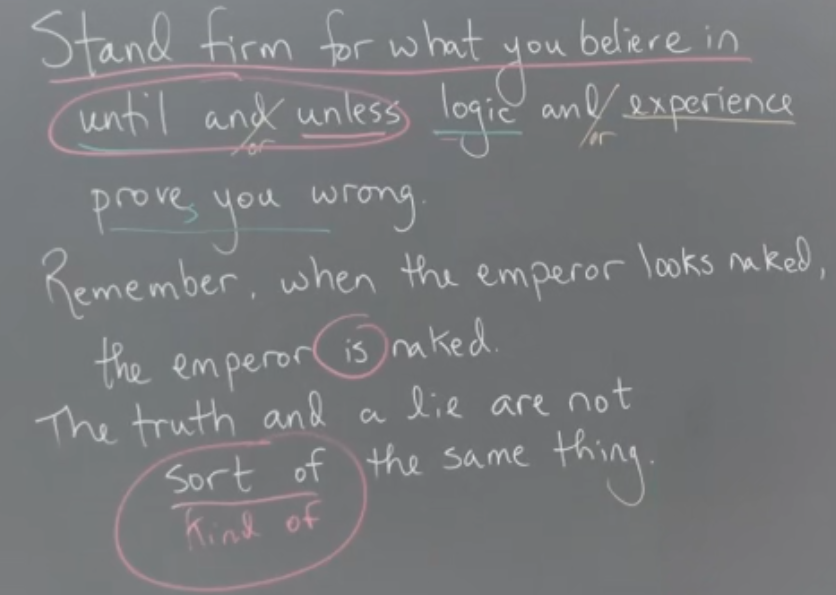 Stand firm for what you believe in
until and/or unless logic and/or experience
proves you wrong.
Remember, when the emperor looks naked,
the emperor is naked.
The truth and a lie are not
sort of the same thing.
kind of